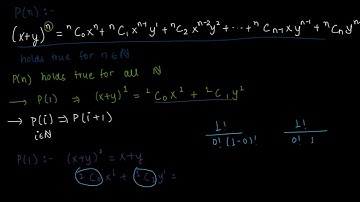 P(n) :-
(x+y)ⁿ = ⁿC₀xⁿ + ⁿC₁xⁿ⁻¹y¹ + ⁿC₂xⁿ⁻²y² + ⋯ + ⁿCₙ₋₁xyⁿ⁻¹ + ⁿCₙyⁿ
holds true for n∈ℕ
P(n) holds true for all ℕ
→ P(1) ⇒ (x+y)¹ = ¹C₀x¹ + ¹C₁y¹
→ P(i) ⇒ P(i+1)
i∈ℕ
1! / 0! (1-0)!
1! / 0! 1
P(1) :- (x+y)¹ = x+y
¹C₀x¹ + ¹C₁y¹ =